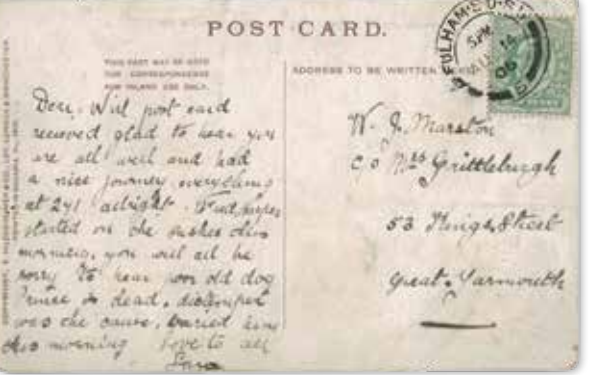 POST CARD.
THIS PART MAY BE USED
FOR CORRESPONDENCE
FOR INLAND USE ONLY.
ADDRESS TO BE WRITTEN
FULHAM · S.O · S.W
5 PM
14
06
Dear Will post card
received glad to hear you
are all well and had
a nice journey everything
at 241 allright.
started on the this
morning, you will all be
sorry to hear poor old dog
Prince is dead, distemper
was the cause, buried him
this morning love to all
W. J. Marston
c/o Mrs Grittleburgh
53 Kings Street
Great Yarmouth